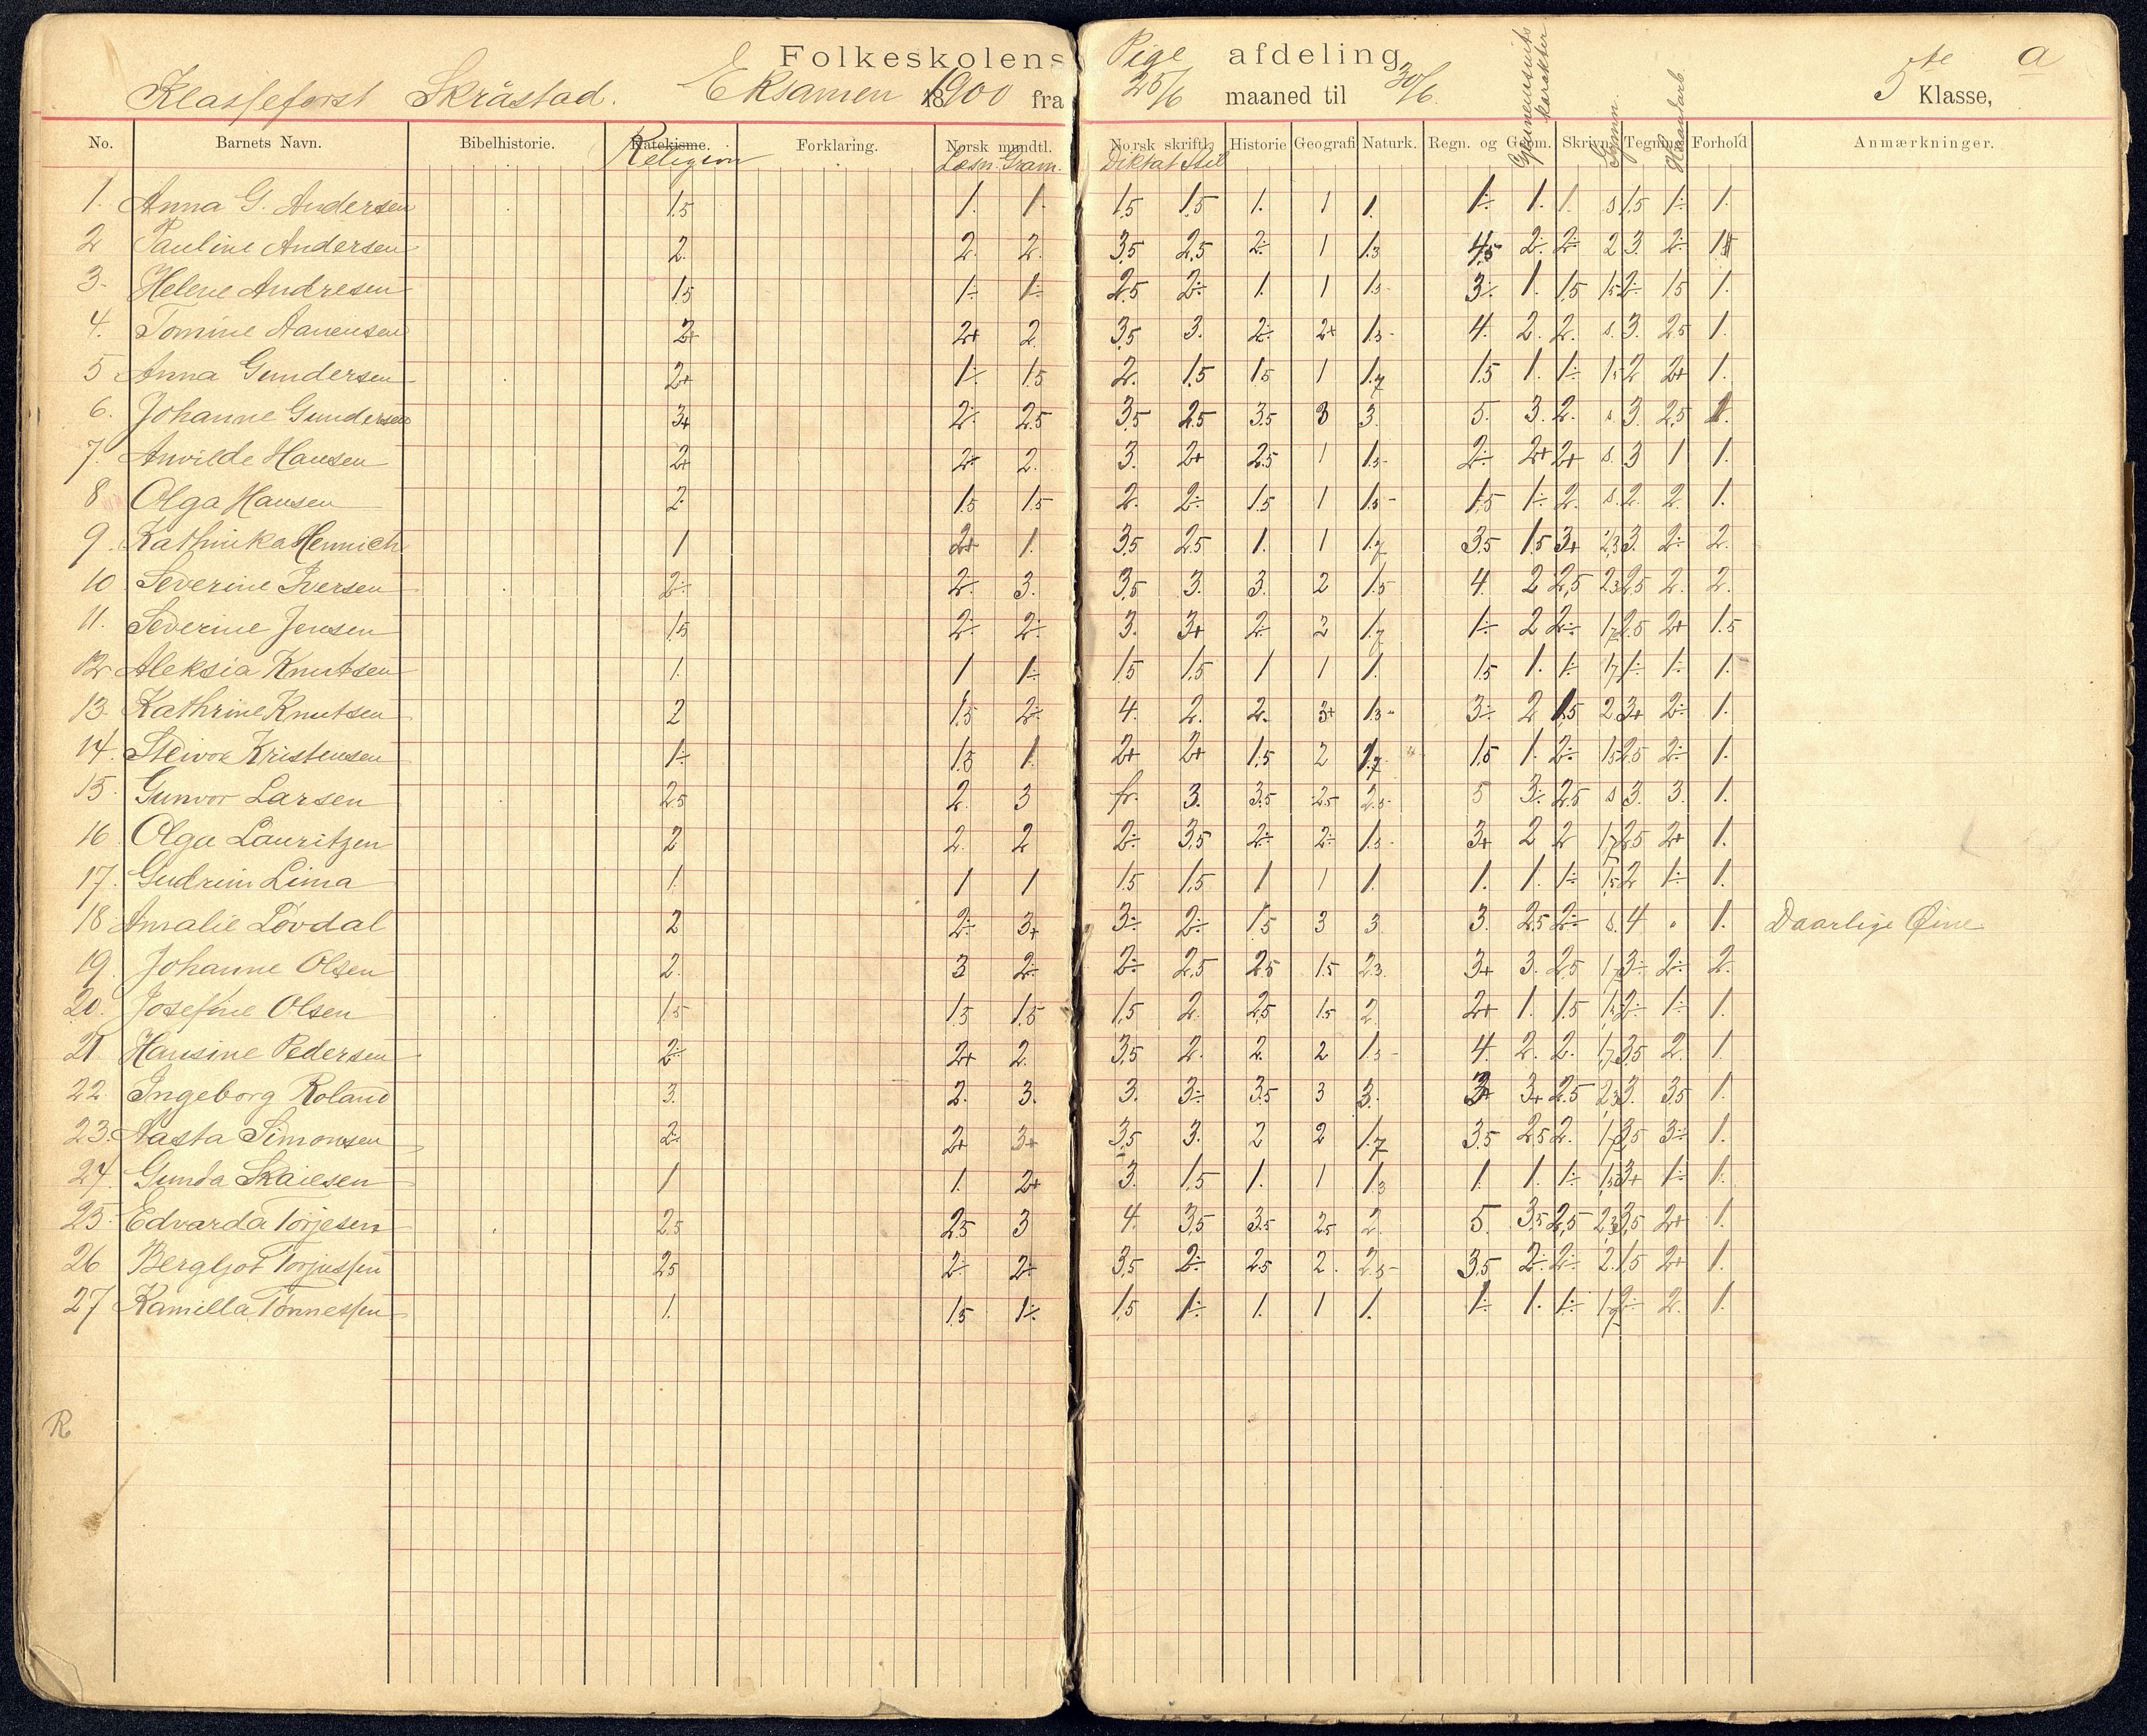 Folkeskolens Pige afdeling 5te a Klasse,
Klasseforst Skråstad. Eksamen 1900 fra 25/6 maaned til 30/6.
No. Barnets Navn. Bibelhistorie. Katekisme. Forklaring. Norsk mundtl. Norsk skriftl. Historie Geografi Naturk. Regn. og Geom. Skrivn. Tegning Forhold Anmærkninger.
Religion Læsn. Gram. Diktat Stil Gjennemsnits karakter Gymn. Haandarb.
1. Anna G. Andersen 1.5 1. 1. 1.5 1.5 1. 1 1. 1÷ 1. 1. s 1.5 1÷ 1.
2 Pauline Andersen 2. 2. 2. 3.5 2.5 2÷ 1 1.3 4.5 2÷ 2÷ 2 3 2÷
3. Helene Andresen 1.5 1÷ 1÷ 2.5 2÷ 1. 1 1.5- 3÷ 1. 1.5 1.5 2÷ 1.5 1.
4. Tomine Aanensen 2+ 2+ 2 3.5 3. 2÷ 2+ 1.5- 4. 2. 2. s. 3. 2.5 1.
5 Anna Gundersen 2+ 1÷ 1.5 2. 1.5 1.5 1 1.7 1.5 1. 1÷ 1.5 2 2+ 1.
6. Johanne Gundersen 3+ 2÷ 2.5 3.5 2.5 3.5 3 3. 5. 3. 2. s. 3. 2.5 1.
7. Anvilde Hansen 2+ 2÷ 2. 3. 2+ 2.5 1 1.5- 2÷ 2+ 2+ s. 3 1 1.
8 Olga Hansen 2. 1.5 1.5 2. 2÷ 1.5 1 1.5- 1.5 1÷ 2. s. 2. 2. 1.
9. Kathinka Hennich 1 2+ 1. 3.5 2.5 1. 1 1.7 3.5 1.5 3+ 2.3 3. 2÷ 2.
10 Severine Iversen 2÷ 2÷ 3. 3.5 3. 3. 2 1.5 4. 2 2.5 2.3 2.5 2. 2.
11. Severine Jensen 1.5 2÷ 2÷ 3. 3+ 2÷ 2 1.7 1÷ 2 2÷ 1.7 2.5 2+ 1.5
12 Aleksia Knutsen 1. 1 1÷ 1.5 1.5 1 1 1. 1.5 1. 1÷ 1.7 1÷ 1÷ 1.
13. Kathrine Knutsen 2 1.5 2÷ 4. 2. 2. 3+ 1.3- 3÷ 2 1.5 2 3+ 2÷ 1.
14. Kristensen 1÷ 1.5 1. 2+ 2+ 1.5 2 1.7 1.5 1. 2÷ 1.5 2.5 2÷ 1.
15. Gunvor Larsen 2.5 2. 3 fr. 3. 3.5 2.5 2.5- 5 3÷ 2.5 s 3. 3. 1.
16 Olga Lauritzen 2 2. 2 2÷ 3.5 2÷ 2÷ 1.5- 3+ 2 2 1.7 2.5 2+ 1.
17. Gudrun Lima 1. 1 1 1.5 1.5 1 1 1. 1. 1. 1÷ 1.5 2 1÷ 1.
18 Amalie Løvdal 2 2÷ 3+ 3÷ 2÷ 1.5 3 3 3. 2.5 2÷ s. 4 " 1. Daarlige Øine
19. Johanne Olsen 2. 3 2÷ 2÷ 2.5 2.5 1.5 2.3. 3+ 3. 2.5 1.7 3÷ 2÷ 2.
20. Josefine Olsen 1.5 1.5 1.5 1.5 2. 2.5 1.5 2 2+ 1. 1.5 1.5 2÷ 1÷ 1.
21. Hansine Pedersen 2÷ 2+ 2. 3.5 2. 2. 2 1.5- 4. 2. 2. 1.7 3.5 2. 1.
22. Ingeborg Roland 3. 2. 3. 3. 3÷ 3.5 3 3. 3+ 3+ 2.5 2.3 3. 3.5 1.
23. Aasta Simonsen 2÷ 2+ 3+ 3.5 3. 2 2 1.7 3.5 2.5 2. 1.7 3.5 3÷ 1.
24. Gunda Skaiesen 1 1. 2+ 3. 1.5 1. 1 1.3 1. 1. 1÷ 1.5 3+ 1÷ 1.
25. Edvarda Torjesen 2.5 2.5 3 4. 3.5 3.5 2.5 2. 5. 3.5 2.5 2.3 3.5 2+ 1.
26 Bergljot Torjussen 2.5 2÷ 2÷ 3.5 2÷ 2.5 2. 2.5- 3.5 2÷ 2÷ 2. 1.5 2+ 1.
27 Kamilla Tønnessen 1. 1.5 1÷ 1.5 1÷ 1. 1 1. 1÷ 1. 1÷ 1.7 2÷ 2. 1.
R